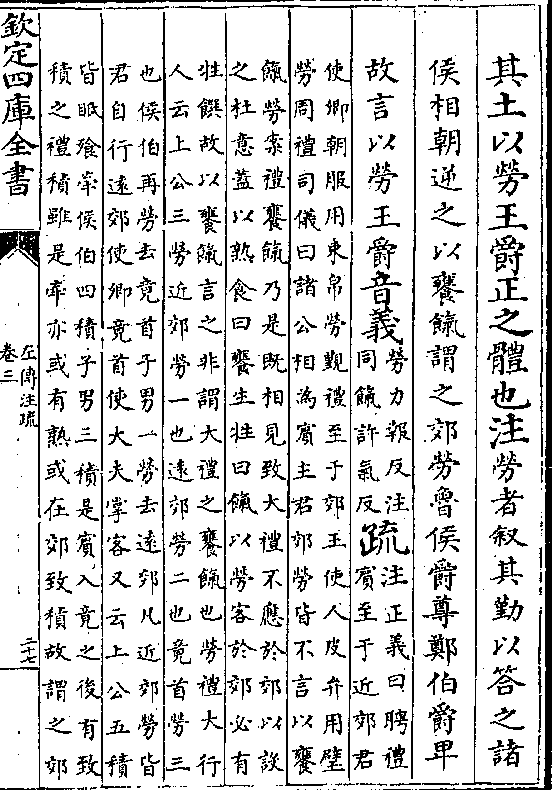 其土以勞王爵正之體也注勞者叙其勤以答之諸
侯相朝逆之以饔餼謂之郊勞魯侯爵尊鄭伯爵卑
故言以勞王爵音義勞力報反注
同餼許氣反疏注正義曰聘禮
賓至于近郊君
使卿朝服用束帛勞覲禮至于郊王使人皮弁用璧
勞周禮司儀曰諸公相為賓主君郊勞皆不言以饔
餼勞案禮饔餼乃是既相見致大禮不應於郊以設
之杜意蓋以熟食曰饔生牲曰餼以勞客於郊必有
牲饌故以饔餼言之非謂大禮之饔餼也勞禮大行
人云上公三勞近郊勞一也遠郊勞二也竟首勞三
也侯伯再勞去竟首子男一勞去遠郊凡近郊勞皆
君自行遠郊使卿竟首使大夫掌客又云上公五積
皆眡飱牽侯伯四積子男三積是賓入竟之後有致
積之禮積雖是牽亦或有熟或在郊致積故謂之郊
欽定四庫全書
左傳注疏
卷三
二十七